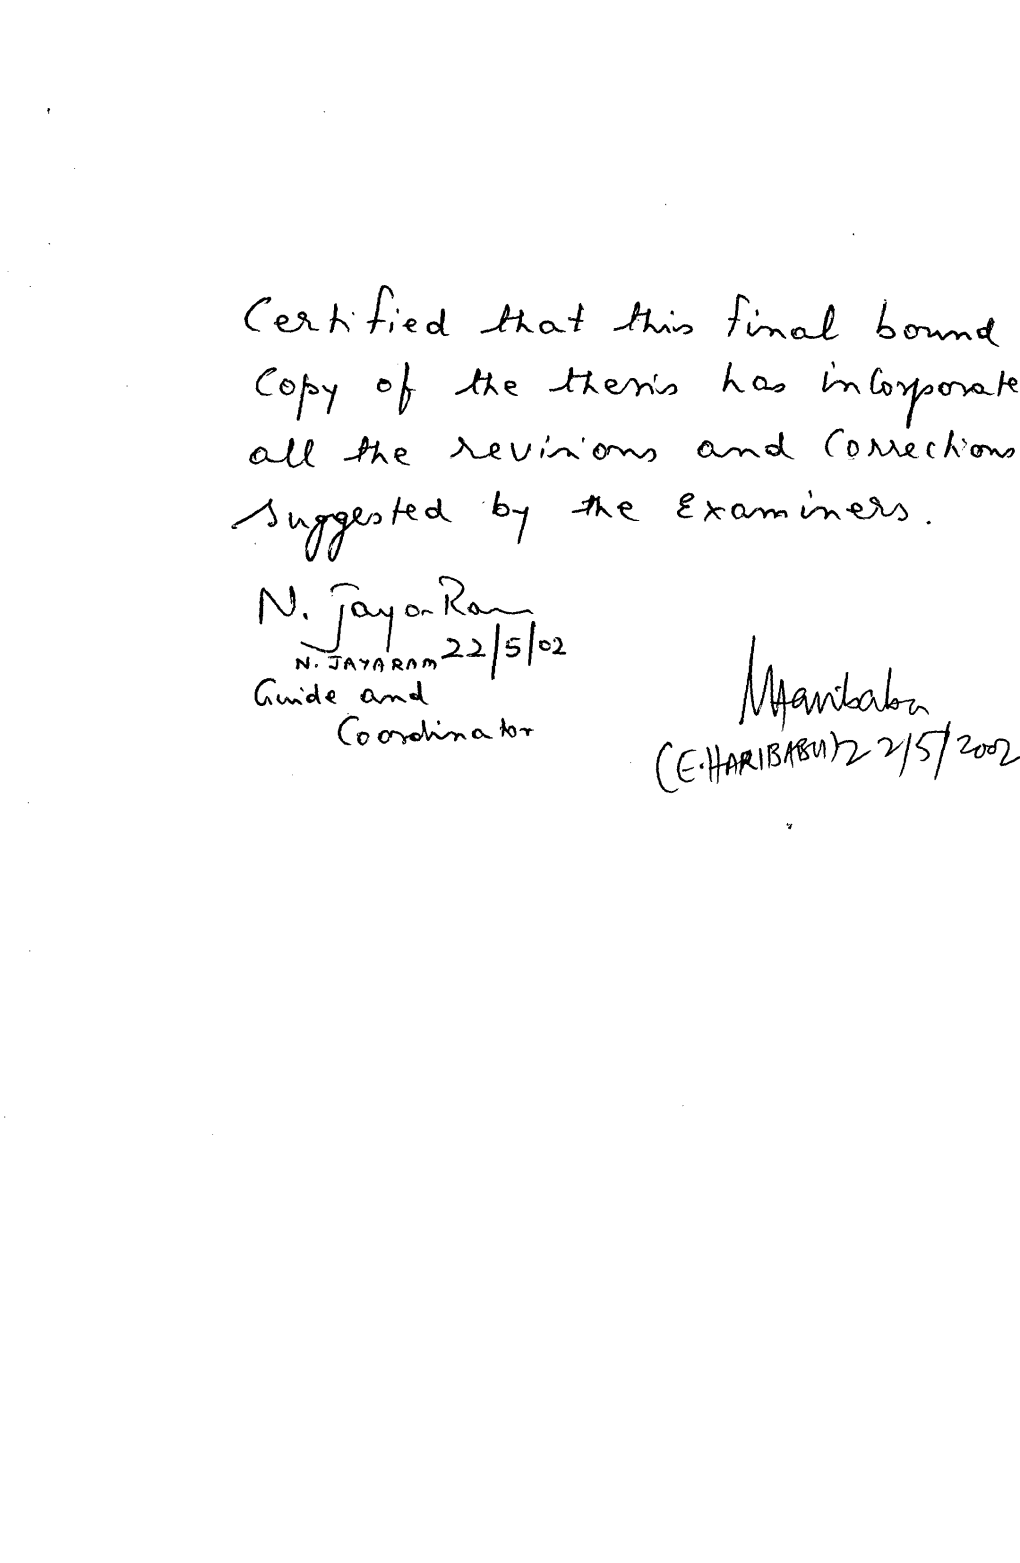 Certified that this final bound
Copy of the thesis has incorporate
all the revisions and Corrections
suggested by the Examiners.
N. JayaRam
N. JAYARAM 22/5/02
Guide and
Coordinator
Haribabu
(E.HARIBABU) 22/5/2002